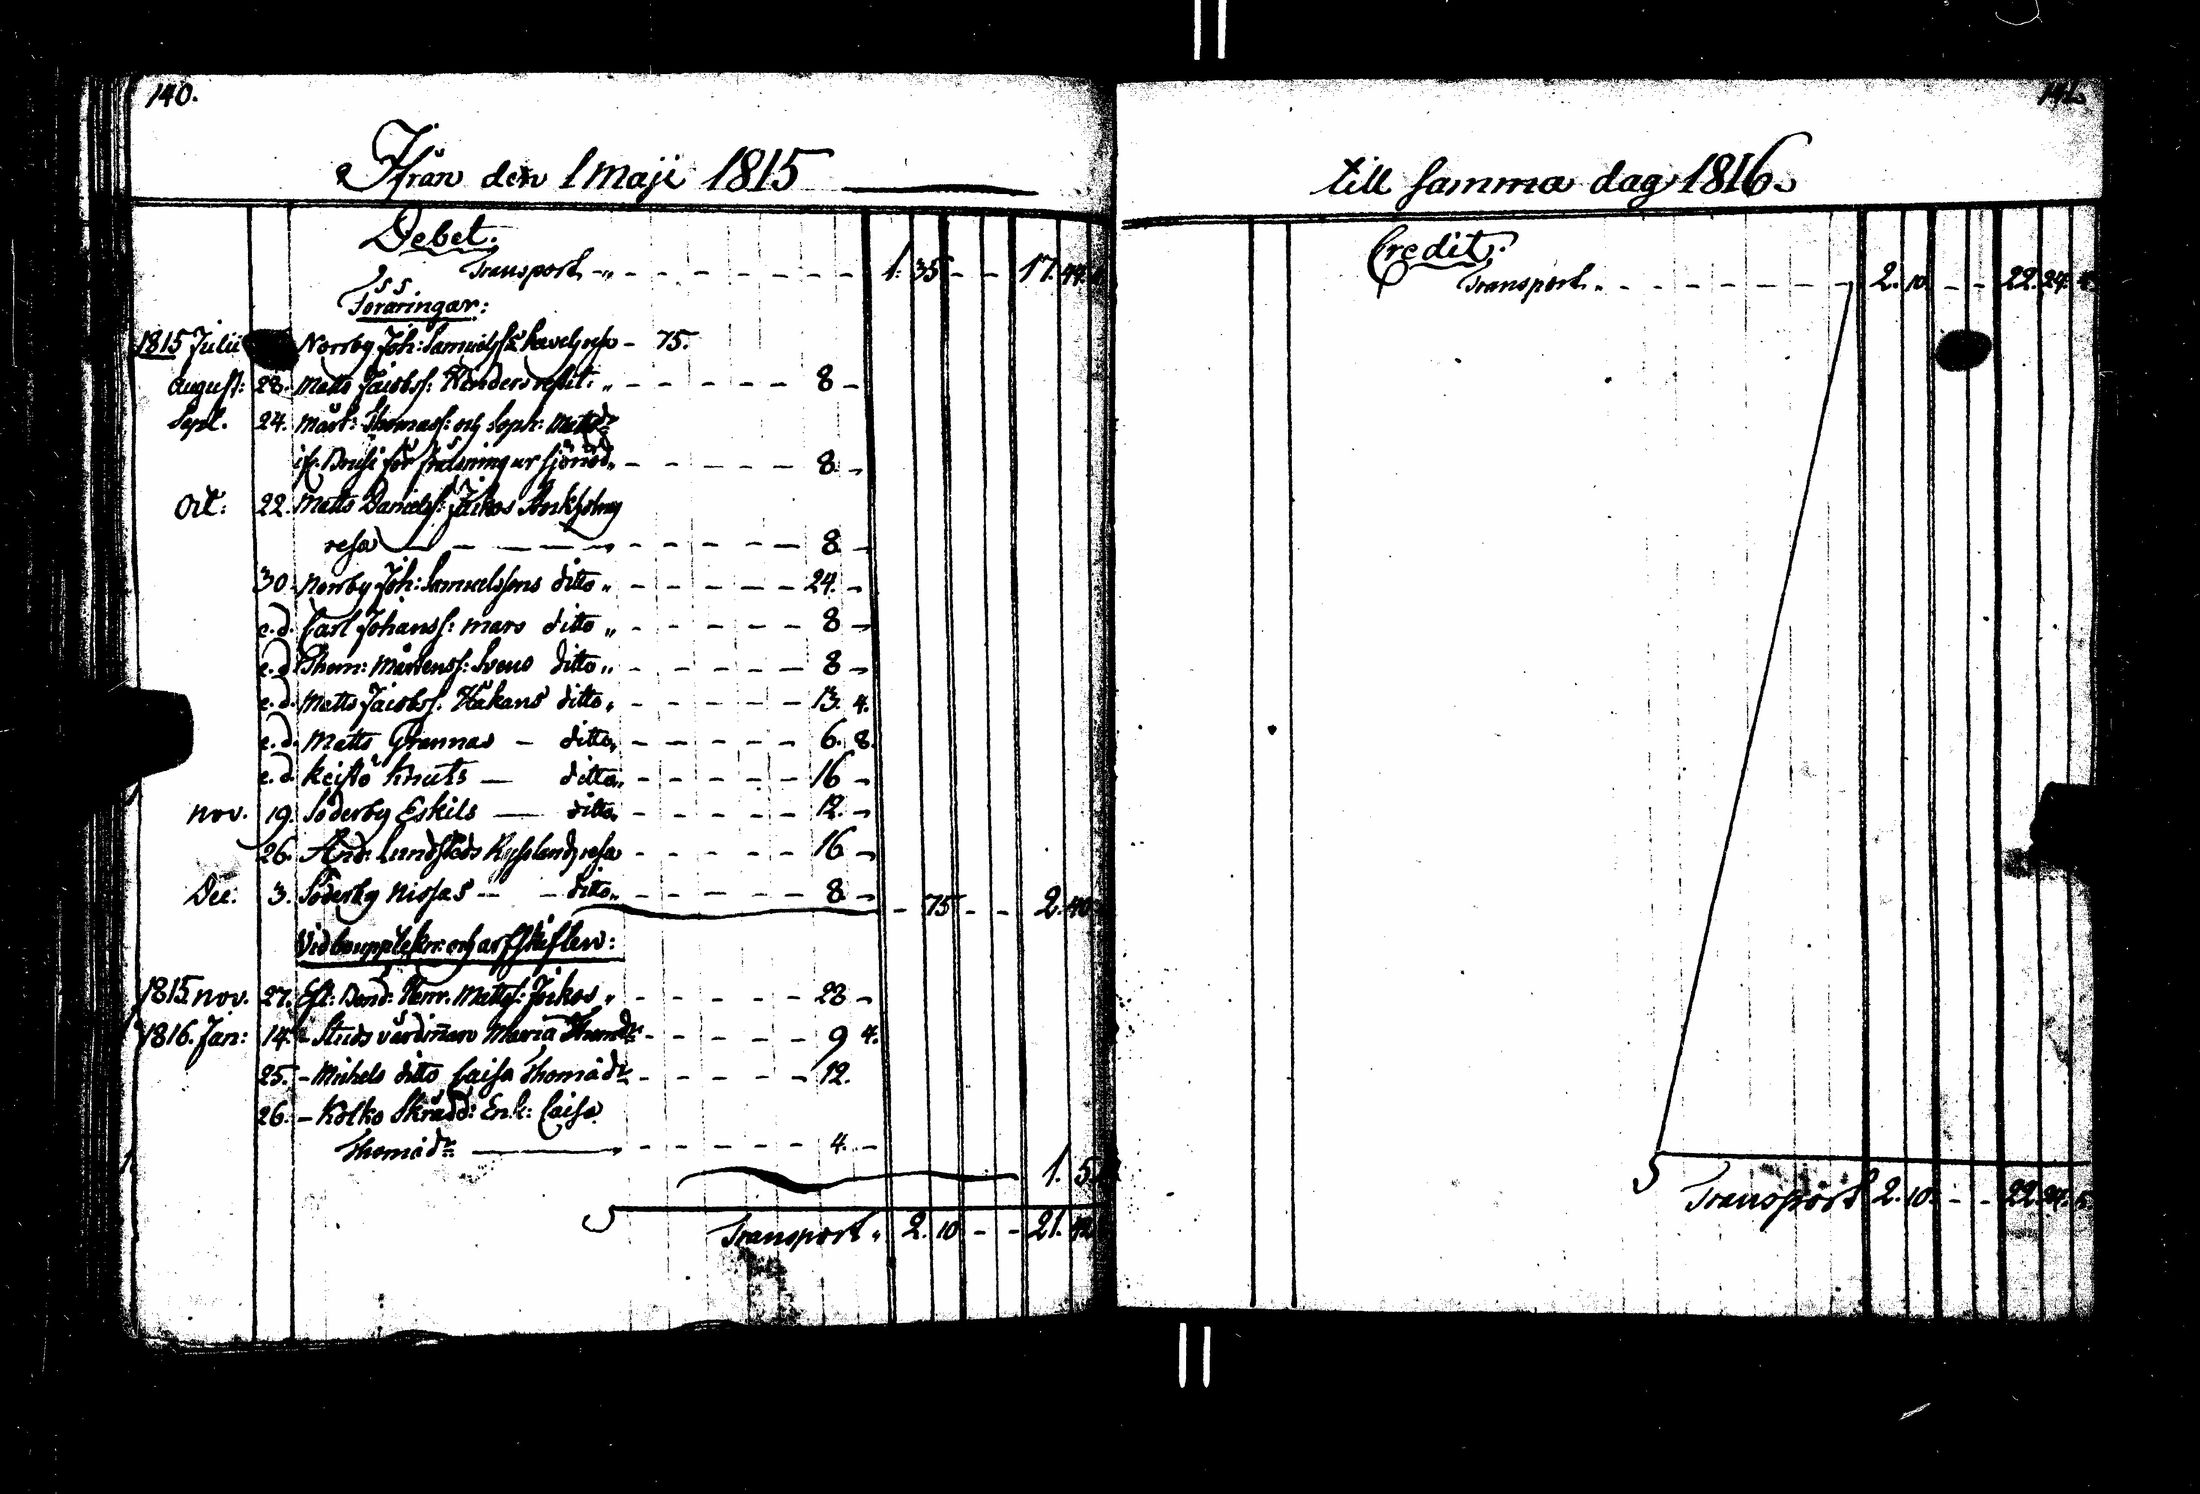 140.
Ifrån den 1 Maji 1815
Debet.
Transport 1. 35 17. 44.
Foräringar:
1815 Julii Norrby Joh: Samuelss: 75.
August: 28. Matts Jacobss: 8
Sept. 24. Mårt: Thomass: och Soph: Mattsdr
för frälsning ur sjönöd 8
Oct: 22. Matts Danielss: Jåikos Stockholms
resa 8
30. Norrby Joh: Samuelssons ditto 24.
e.d. Carl Johanss: Mars ditto 8
e.d. Thom: Mårtenss: Svens ditto 8
e.d. Matts Jacobss. Håkans ditto 13. 4.
e.d. Matts Grannas ditto 6. 8.
e.d. Keistö Knuts ditto 16
Nov. 19. Söderby Eskils ditto 12.
26. And: Lundsteds Rysslands resa 16
Dec. 3. Söderby Nissas ditto 8
75 2. 40
Vid bouppteckn: och arfskiften:
1815 Nov. 27. Eft: Bond: Henr. Mattss: Jåikos 28
1816. Jan: 14. Studs värdinnan Maria 9 4.
25. Michels ditto Caisa Thomådr 12.
26. Kolko Skrädd: Enk: Caisa
Thomådr 4.
1. 5.
Transport 2. 10 21. 42
till samma dag 1816.
Credit.
Transport 2. 10. 22. 24.
Transport 2. 10. 22. 24.